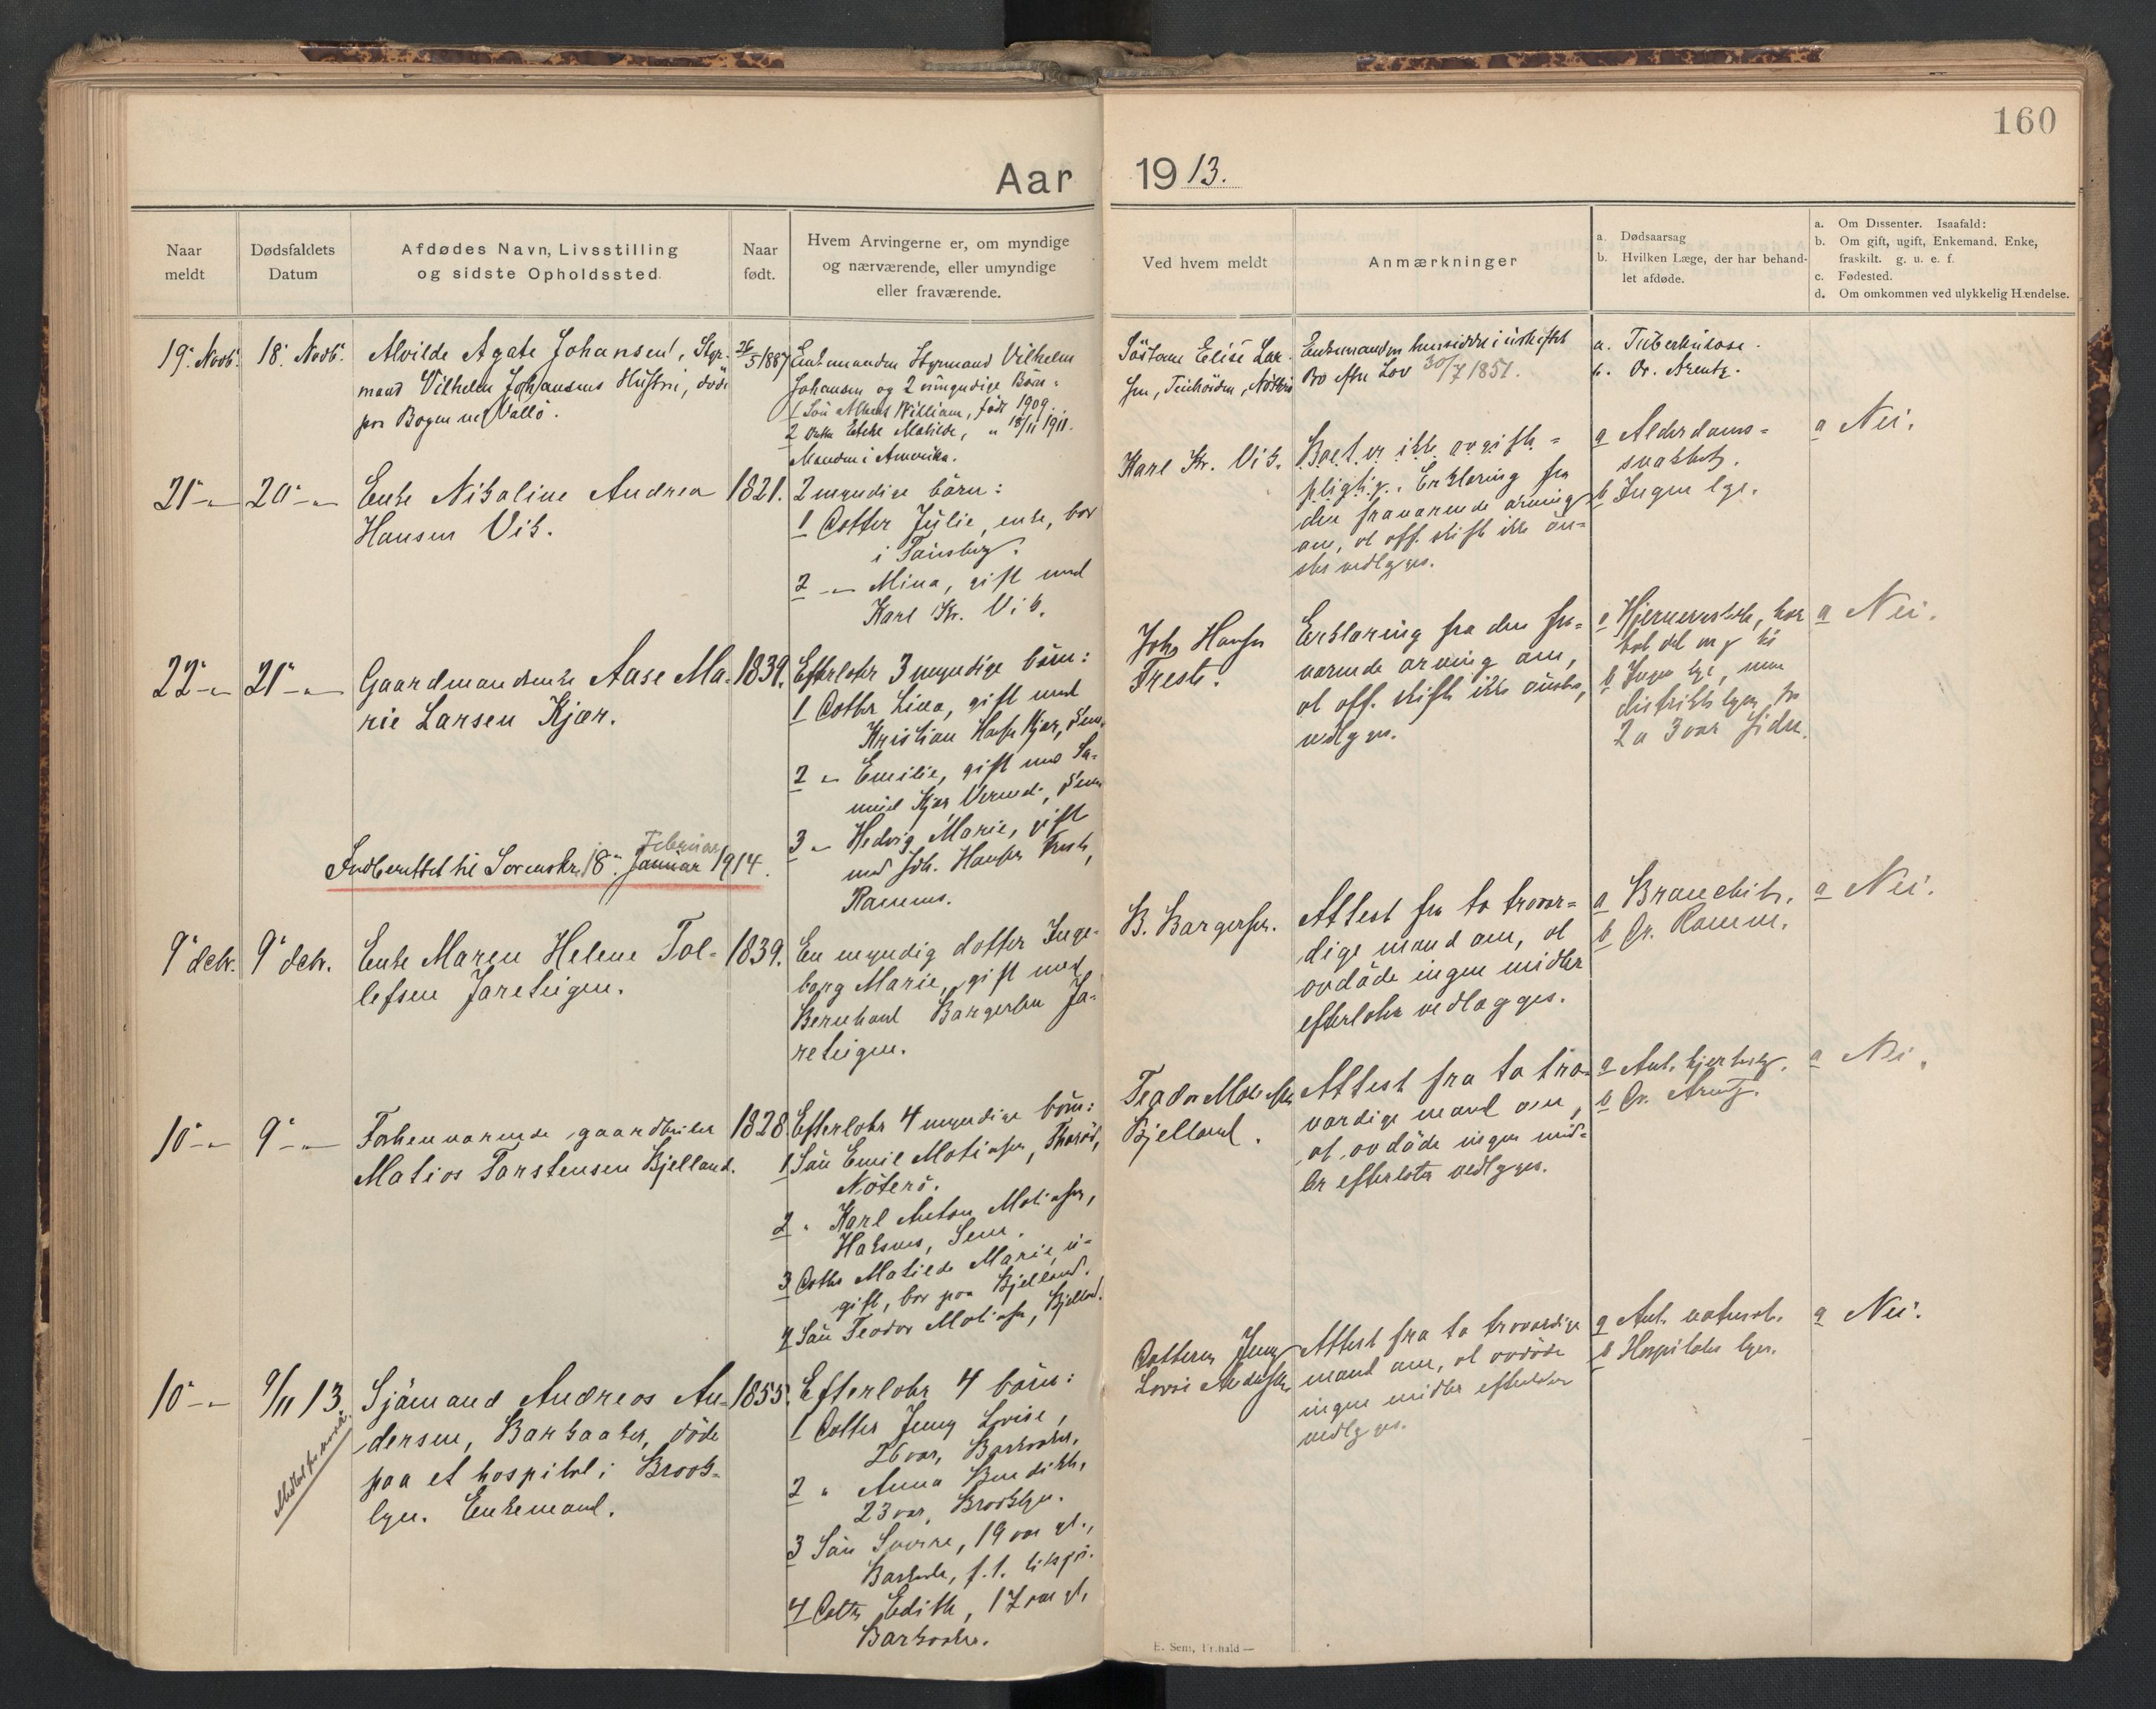 160
Aar 1913.
Naar
meldt
Dødsfaldets
Datum
Afdødes Navn, Livsstilling
og sidste Opholdssted.
Naar
født.
Hvem Arvingerne er, om myndige
og nærværende, eller umyndige
eller fraværende.
Ved hvem meldt
Anmærkninger
a. Dødsaarsag
b. Hvilken Læge, der har behand-
let afdøde.
a. Om Dissenter. Isaafald:
b. Om gift, ugift, Enkemand, Enke,
fraskilt. g. u. e. f.
c. Fødested.
d. Om omkommen ved ulykkelig Hændelse.
19. Novb.
18. Novb.
Alvilde Agate Johansen, Styr-
mand Vilhelm Johansens Hustru, døde
paa Bogen ved Vallø.
26/5 1887
Enkemanden Styrmand Vilhelm
Johansen og 2 umyndige Børn:
1 Søn Albert William, født 1909.
2 Matilde, " 18/11 1911.
Manden i Amerika.
Elise Lar-
sen,
Enkemanden hensidder i uskiftet
Bo efter Lov 30/7 1851.
a. Tuberkulose.
b. Dr. Arentz.
21" -"-
20" -"-
Enke Nikoline Andrea
Hansen Vik.
1821.
2 myndige børn:
1 Dotter Julie, enke, bor
i Tønsberg.
2 -"- Mina, gift med
Karl Kr. Vik.
Karl Kr. Vik.
Boet er ikke avgifts-
pligtig. Erklæring fra
den fraværende arving
om, at off. skifte ikke øn-
skes vedlægges.
a Alderdoms-
svakhet.
b Ingen læge.
a Nei.
22" -"-
21" -"-
Gaardmandsenke Aase Ma-
rie Larsen Kjær.
1839.
Efterlater 3 myndige børn:
1 Dotter Lina, gift med
Kristian Hansen Kjær, Sem.
2 -"- Emilie, gift med
Kjær Sem
3 -"- Hedvig Marie, gift
med Joh. Hansen Freste,
Ramnes.
Johs Hansen
Freste.
Erklæring fra den fra-
værende arving om,
at off. skifte ikke ønskes,
vedlægges.
a har
b Ingen læge, men
distriktslægen for
2 a 3 aar siden.
a Nei.
Februar
Indberettet til Sorenskr. 18. Januar 1914.
9" decbr.
9" decbr.
Enke Maren Helene Tol-
lefsen Jareteigen.
1839.
En myndig dotter Inge-
borg Marie, gift med
Bernhard Børgersen Ja-
reteigen.
B. Børgersen.
Attest fra to trovær-
dige mænd om, at
avdøde ingen midler
efterlater vedlægges.
a Bronchit.
b Dr. Ramm.
a Nei.
10" -"-
9" -"-
Forhenværende gaardbruker
Matias Torstensen Bjelland.
1828.
Efterlater 4 myndige børn:
1 Søn Emil Matiasen, Thorød,
Nøterø.
2 " Karl Anton Matiasen,
Haksnes, Sem.
3 Dotter Matilde Marie, u-
gift, bor paa Bjelland.
4 Søn Teodor Matiasen, Bjelland.
Teodor Matiasen
Bjelland.
Attest fra to tro-
værdige mænd om,
at avdøde ingen mid-
ler efterlater vedlægges.
a Ant. hjerteslag.
b Dr. Arentz.
a Nei.
10" -"-
9/11 13.
Sjømand Andreas An-
dersen, Barkaaker, døde
paa et hospital i Brook-
lyn. Enkemand.
1855.
Efterlater 4 børn:
1 Dotter Jenny Lovise,
26 aar, Barkaaker.
2 " Anna Benedikte,
23 aar, Brooklyn.
3 Søn Sverre, 19 aar gl.,
Barkaaker, f.t. tilsjøs.
4 Dotter Edith, 17 aar gl.
Barkaaker.
Dotteren Jenny
Lovise Andersen
Attest fra to troværdige
mænd om, at avdøde
ingen midler efterlater
vedlægges.
a Ant. naturlig.
b Hospitalets læge.
a Nei.
E. Sem, Fr.hald —